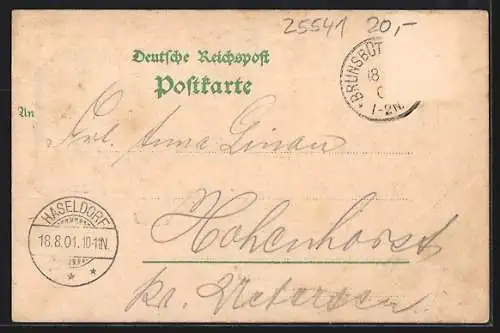 25541 20,-
Deutsche Reichspost
Postkarte
BRUNSBÜT
18
1-2N.
An
Frl. Anna Ginau
HASELDORF
18.8.01. 10-11N.
* *
Hohenhorst
pr. Uetersen